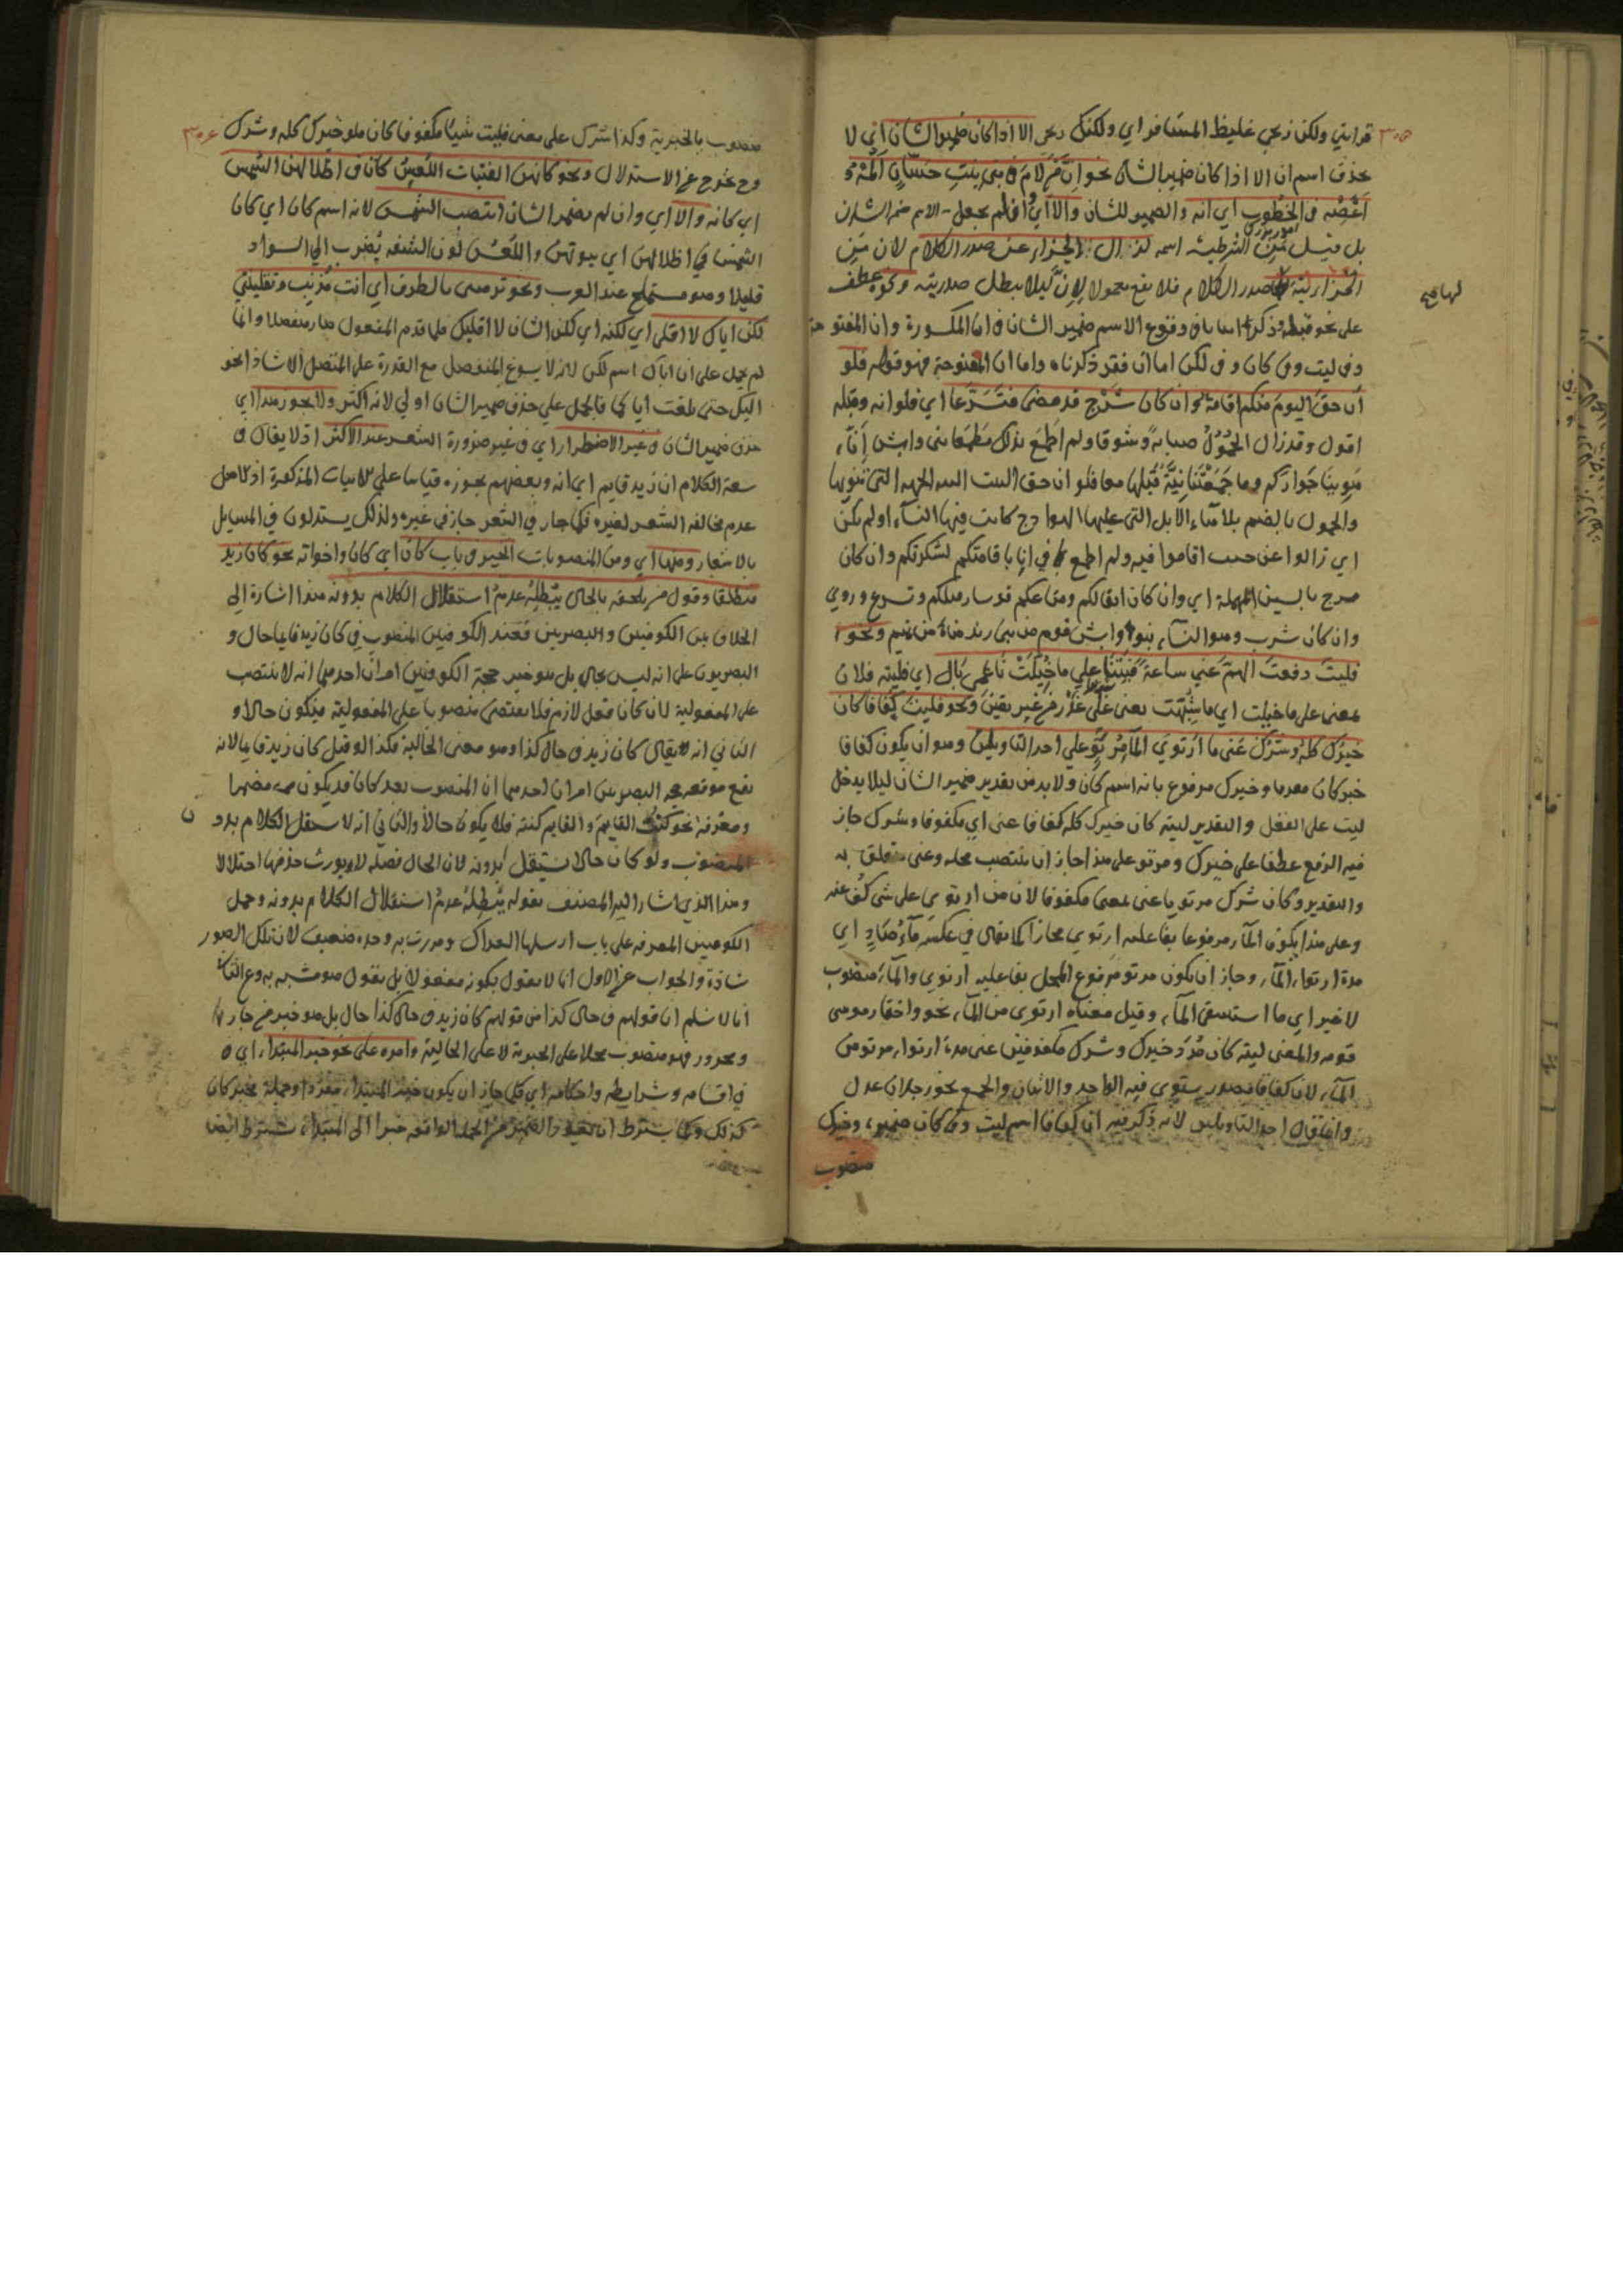 ٣٠٥
قرابتي ولكن زنجي غليظ المشافر اي ولكنك زنجي الا اذا كان ضمير الشان اي لا
يحذف اسم ان الا اذا كان ضمير الشان نحو ان من لام في بني بنت حسان المه و
اعصه في الخطوب اي انه والضمير للشان والا اي اذ لم يجعل الاسم ضمير الشان
بل قيل من الشرطية اسمه لزال الجزاء عن صدر الكلام لان من
الجزائية لها صدر الكلام فلا يقع معمولا لان ليلا يبطل صدريته ونحوه عطف
على نحو قبله وذكر وقوع الاسم ضمير الشان في ان المكسورة وان المفتوحة
وفي ليت وفي كان وفي لكن اما ان فقد ذكرناه واما ان المفتوحة فهو قوله فلو
ان حق اليوم منكم اقامة وان كان سرح قد مضى فتسرعا اي فلو انه وقبله
اقول وقد زال الحمول صبابة وشوقا ولم اطمع بذلك مطمعا
جواركم وما جمعتنا نية قبلها معا فلو ان حق البيت النية الجهة التي تنويها
والحمول بالضم بلا هاء الابل التي عليها الهوادج كانت فيها النساء او لم يكن
اي زالوا عن حيث اقاموا فيه ولم اطمع في باقامتكم لشكرتكم وان كان
سرح بالسين المهملة اي وان كان اثقالكم ومتاعكم قد سار قبلكم وتسرع وروي
وان كان شرب وهو النساء قوم من بني زيد مناة من تميم ونحو
فليت دفعت الهم عني ساعة فبتنا على ما خيلت ناعمي بال اي فليته فلان
بمعنى على ما خيلت اي ما شبهت يعني على غرر من غير يقين ونحو فليت كفافا كان
خيرك كله وشرك عني ما ارتوى الماء مرتو على احد التاويلين وهو ان يكون كفافا
خبر كان مقدما وخيرك مرفوع بانه اسم كان ولا بد من تقدير ضمير الشان ليلا يدخل
ليت على الفعل والتقدير ليته كان خيرك كله كفافا عني اي مكفوفا وشرك جاز
فيه الرفع عطفا على خيرك ومرتو على هذا جاز ان ينتصب محله وعني متعلق به
والتقدير وكان شرك مرتويا عني بمعنى مكفوفا لان من ارتوى على شي كف عنه
وعلى هذا يكون الماء مرفوعا بفاعلية ارتوى مجازا كما يقال في عكسه ماء صاد اي
مدة ارتواء الماء وجاز ان يكون مرتو مرفوع المحل بفاعلية ارتوى والماء منصوب
لا غير اي ما استسقى الماء وقيل معناه ارتوى من الماء نحو واختار موسى
قومه والمعنى ليته كان خيرك وشرك مكفوفين عني مدة ارتواء مرتو من
الماء لان كفافا مصدر يستوي فيه الواحد والاثنان والجمع نحو رجلان عدل
وانما قال احد التاويلين لانه ذكر فيه ان كفافا اسم ليت وفي كان ضميره وخيرك
منصوب
٣٠٦
منصوب بالخبرية وكذا شرك على معنى فليت شيئا مكفوفا كان هو خيرك كله وشرك
وح يخرج عن الاستدلال ونحو كانهن الفتيات اللعس كان في اظلالهن الشمس
اي كانه والا اي وان لم يضمر الشان انتصب الشمس لانه اسم كان اي كان
الشمس في اظلالهن اي بيوتهن واللعس لون الشفة يضرب الى السواد
قليلا وهو مستملح عند العرب ونحو ترمينني بالطرف اي انت مذنب وتقلينني
لكن اياك لا اقلي اي لكنه اي لكن الشان لا اقليك فلما قدم المفعول صار منفصلا وانما
لم يحمل على ان اياك اسم لكن لانه لا يسوغ المنفصل مع القدرة على المتصل الا شاذا نحو
اليك حتى بلغت اياكا فالحمل على حذف ضمير الشان اولى لانه اكثر ولا يجوز هذا اي
حذف ضمير الشان في غير الاضطرار اي في غير ضرورة الشعر عند الاكثر اذ لا يقال في
سعة الكلام ان زيد قايم اي انه وبعضهم يجوزه قياسا على الابيات المذكورة اذ الاصل
عدم مخالفة الشعر لغيره فكما جاز في الشعر جاز في غيره ولذلك يستدلون في المسايل
بالاشعار ومنها اي ومن المنصوبات الخبر في باب كان اي كان واخواته نحو كان زيد
منطلقا وقول من يلحقه بالحال يبطله عدم استقلال الكلام بدونه هذا اشارة الى
الخلاف بين الكوفيين والبصريين فعند الكوفيين المنصوب في كان زيد قايما حال و
البصريون على انه ليس بحال بل هو خبر حجة الكوفيين امران احدهما انه لا ينتصب
على المفعولية لان كان فعل لازم فلا يقتضي منصوبا على المفعولية فيكون حالا و
الثاني انه يقال كان زيد في حال كذا وهو معنى الحالية فكذا لو قيل كان زيد قايما لانه
يقع موقعه حجة البصريين امران احدهما ان المنصوب بعد كان قد يكون مضمرا
ومعرفة نحو كنت القايم والقايم كنته فلا يكون حالا والثاني انه لا يستقل الكلام بدون
المنصوب ولو كان حالا لاستقل بدونه لان الحال فضلة لا يورث حذفها اختلالا
وهذا الذي اشار اليه المصنف بقوله يبطله عدم استقلال الكلام بدونه وحمل
الكوفيين المعرفة على باب ارسلها العراك ومررت به وحده ضعيف لان تلك الصور
شاذة والجواب عن الاول انا لا نقول بكونه مفعولا بل نقول هو مشبه به وعن الثاني
انا لا نسلم ان قولهم في حال كذا من قولهم كان زيد في حال كذا حال بل هو خبر من جار
ومجرور فهو منصوب محلا على الخبرية لا على الحالية وامره على نحو خبر المبتداء اي
في اقسامه وشرايطه واحكامه اي كما جاز ان يكون خبر المبتداء مفردا وجملة فخبر كان
كذلك وكما يشترط ان الضمير من الجملة الواقعة خبرا الى المبتداء يشترط ايضا